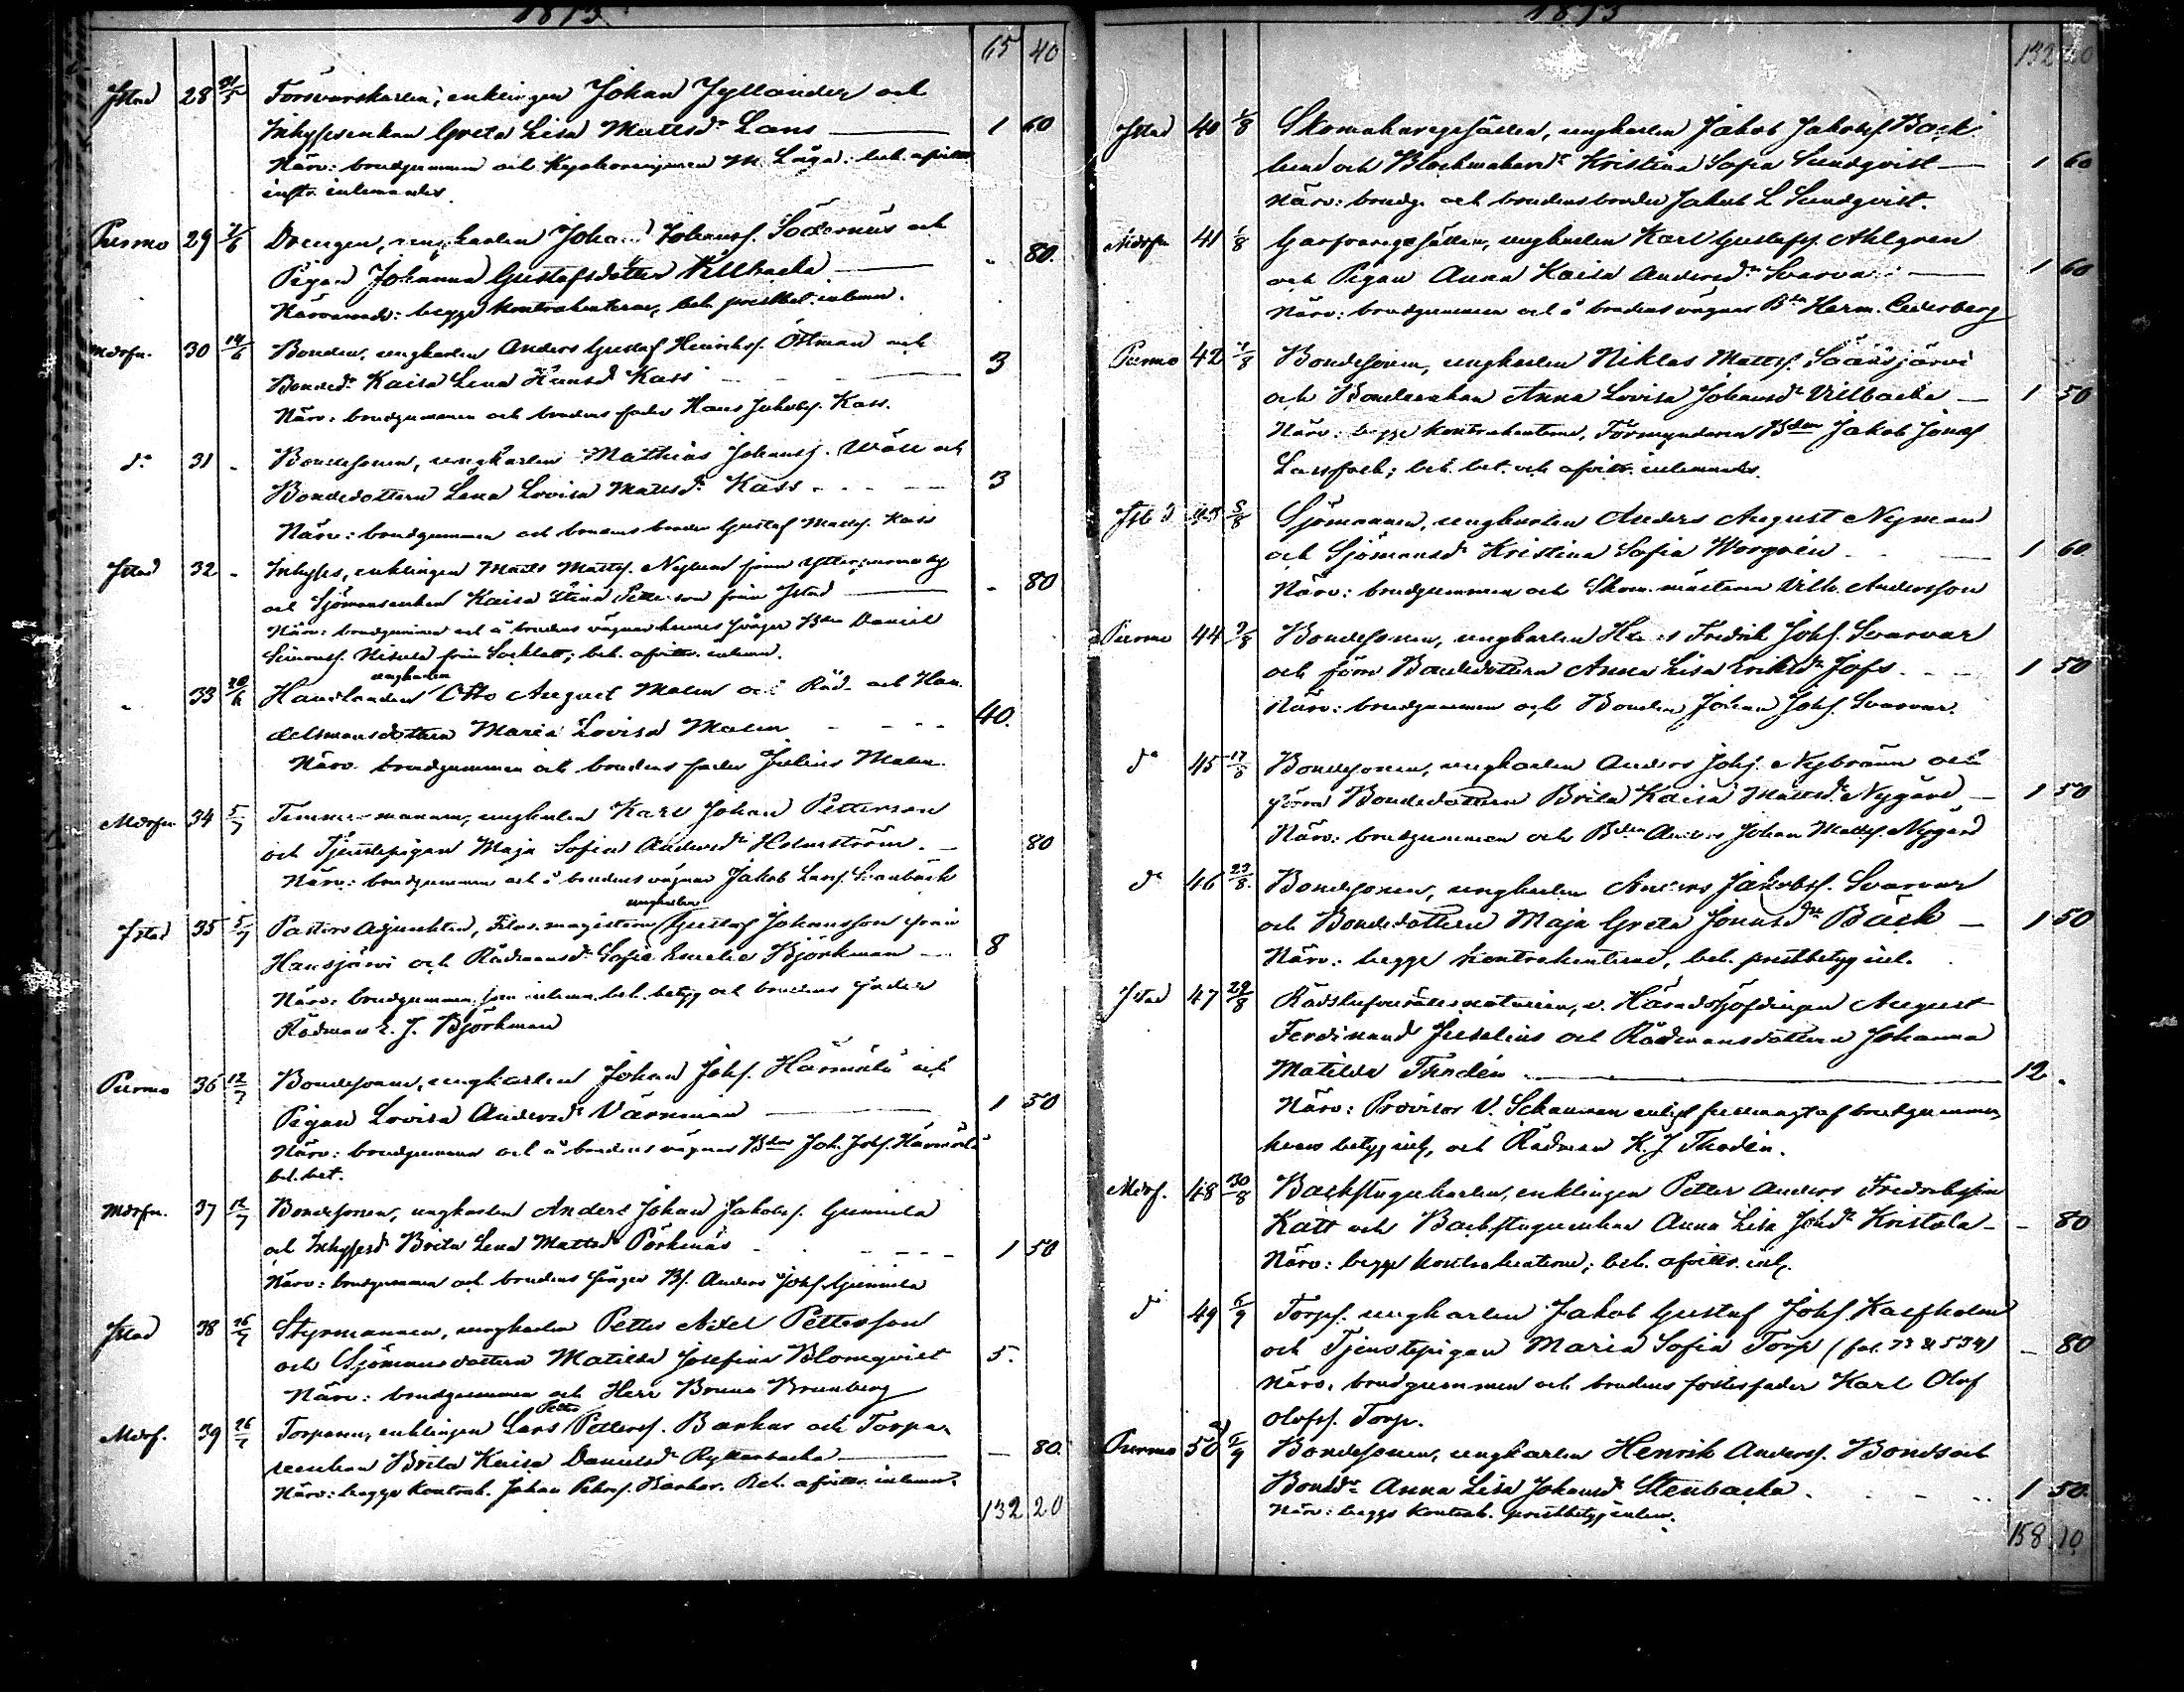 1873
65 40
Jstad 28 31/5 Försvarskarlen, enklingen Johan Jyllander och
Inhysesenkan Greta Lisa Mattsdr Lans — 1 60
Närv: brudgummen och M. Låga. beh. afvittr.
instr. inlemnades.
Purmo 29 7/6 Drengen, ungkarlen Johan Johanss. Södernäs och
Pigan Johanna Gustafsdotter Villbacka — - 80.
Närvarande: begge kontrahenterne, beh. prestbet. inlemn.
Mdrsfn. 30 14/6 Bonden, ungkarlen Anders Gustaf Henrikss. Östman och
Bonded. Kaisa Lena Hansdr Kass — 3
Närv: brudgummen och brudens fader Hans Jakobss. Kass.
do 31 - Bondesonen, ungkarlen Mathias Johanss. Wäst och
Bondedottern Lena Lovisa Mattsdr Kass - - - 3
Närv: brudgummen och brudens broder Gustaf Matts. Kass
Jstad 32 - Inhyses, enklingen Matts Matts. Nylund från Ytterpurmo by
och Sjömansenkan Kaisa Stina Petterson från Jstad — - 80
Närv: brudgummen och å brudens vägnar hennes svåger Bdn Daniel
Simonss. Nisula från Socklott; beh. afvittr. inlemn.
- 33 20/6 Handlanden ungkarlen Otto August Malm och Råd- och Han-
delsmansdottern Maria Lovisa Malm - - - 40.
Närv. brudgummen och brudens fader Julius Malm.
Mdrsfn 34 5/7 Timmermannen, ungkarlen Karl Johan Petterson
och Tjenstepigan Maja Sofia Andersdr Holmström. — 80
Närv: brudgummen och å brudens vägnar Jakob Larss. Granbäck
Jstad 35 5/7 Pastors Adjunkten, Filos. magistern ungkarlen Gustaf Johansson från
Hansjärvi och Rådmansdr Sofia Emelie Björkman — 8
Närv: brudgummen, som inlemn. beh. betyg och brudens fader
Rådman E. J. Björkman
Purmo 36 12/7 Bondesonen, ungkarlen Johan Johs. Härmälä och
Pigan Lovisa Andersdr Värnman — 1 50
Närv: brudgummen och å brudens vägnar Bdn Joh. Johs. Härmälä
beh. bet.
Mdrsfn. 37 12/7 Bondesonen, ungkarlen Anders Johan Jakobss. Gunnila
och Inhysesdr Brita Lena Mattsdr Pörkenäs - - - 1 50
Närv: brudgummen och brudens svåger Bs. Anders Johs. Gunnila
Jstad 38 26/7 Styrmannen, ungkarlen Petter Axel Pettersson
och Sjömansdottern Matilda Josefina Blomqvist 5.
Närv: brudgummen och Herr Bruno Brunberg
Mdrsf. 39 26/7 Torparen, enklingen Lars Petter Petterss. Backar och Torpa-
reenkan Brita Kaisa Danielsdr Ryttarbacka — — 80.
Närv: begge kontrah. Johan Petters. Backar. Beh. afvittr. inlemn.
132 20
1873
132 20
Jstad 40 1/8 Skomakaregesällen, ungkarlen Jakob Jakobss. Back-
lund och Blockmakaredr Kristina Sofia Sundqvist — 1 60
Närv: brudg. och brudens broder Jakob L Sundqvist.
Mdrsfn 41 1/8 Garfvaregesällen, ungkarlen Karl Gustafss. Ahlgren
och Pigan Anna Kaisa Andersdr Svarvar — 1 60
Närv: brudgummen och å brudens vägnar Bdn Herm. Cederberg
Purmo 42 2/8 Bondesonen, ungkarlen Niklas Mattss. Sääksjärvi
och Bondeenkan Anna Lovisa Johansdr Villbacka — 1 50
Närv: begge kontrahenterne, Förmyndaren Bden Jakob Jonass
Lassfolk; beh. bet. och afvittr. inlemnades.
Jstad 43 5/8 Sjömannen, ungkarlen Anders August Nyman
och Sjömansdr Kristina Sofia Worgrén — 1 60
Närv: brudgummen och Skom. mästaren Vilh. Andersson
Purmo 44 9/8 Bondesonen, ungkarlen Hans Fredrik Johs. Svarvar
och förra Bondedottern Anna Lisa Eriksdr Jofs - - 1 50
Närv: brudgummen och Bonden Johan Johs. Svarvar.
do 45 17/8 Bondesonen, ungkarlen Anders Johs. Nybränn och
förra Bondedottern Brita Kaisa Mattsdr Nygård — 1 50
Närv: brudgummen och Bden Anders Johan Mattss. Nygård
do 46 23/8. Bondesonen, ungkarlen Anders Jakobss. Svarvar
och Bondedottern Maja Greta Jonasdr Bäck — 1 50
Närv: begge kontrahenterne, beh. prestbetyg inl.
Jstad 47 29/8 Rådstufvurättsnotarien, v. Häradshöfdingen August
Ferdinand Juselius och Rådmansdottern Johanna
Matilda Thodén — 12.
Närv: Provisor V. Schauman enligt fullmagt af brudgummen,
hvars betyg inl., och Rådman K. J. Thodén.
Mdrsf. 48 30/8 Backstugukarlen, enklingen Petter Anders Fredriksson
Katt och Backstuguenkan Anna Lisa Johdr Kristola — - 80
Närv: begge kontrahenterne; beh. afvittr. inl.
d 49 6/9 Torps. ungkarlen Jakob Gustaf Johs. Kalfholm
och Tjenstepigan Maria Sofia Torp (fol. 73 & 534) — 80
Närv. brudgummen och brudens fosterfader Karl Olof
Olofss. Torp.
Purmo 50 6/9 Bondesonen, ungkarlen Henrik Anderss. Bonds och
Bonddr Anna Lisa Johansdr Stenbacka . - - 1 50.
Närv: begge kontrah. prestbetyg inlem.
158.10